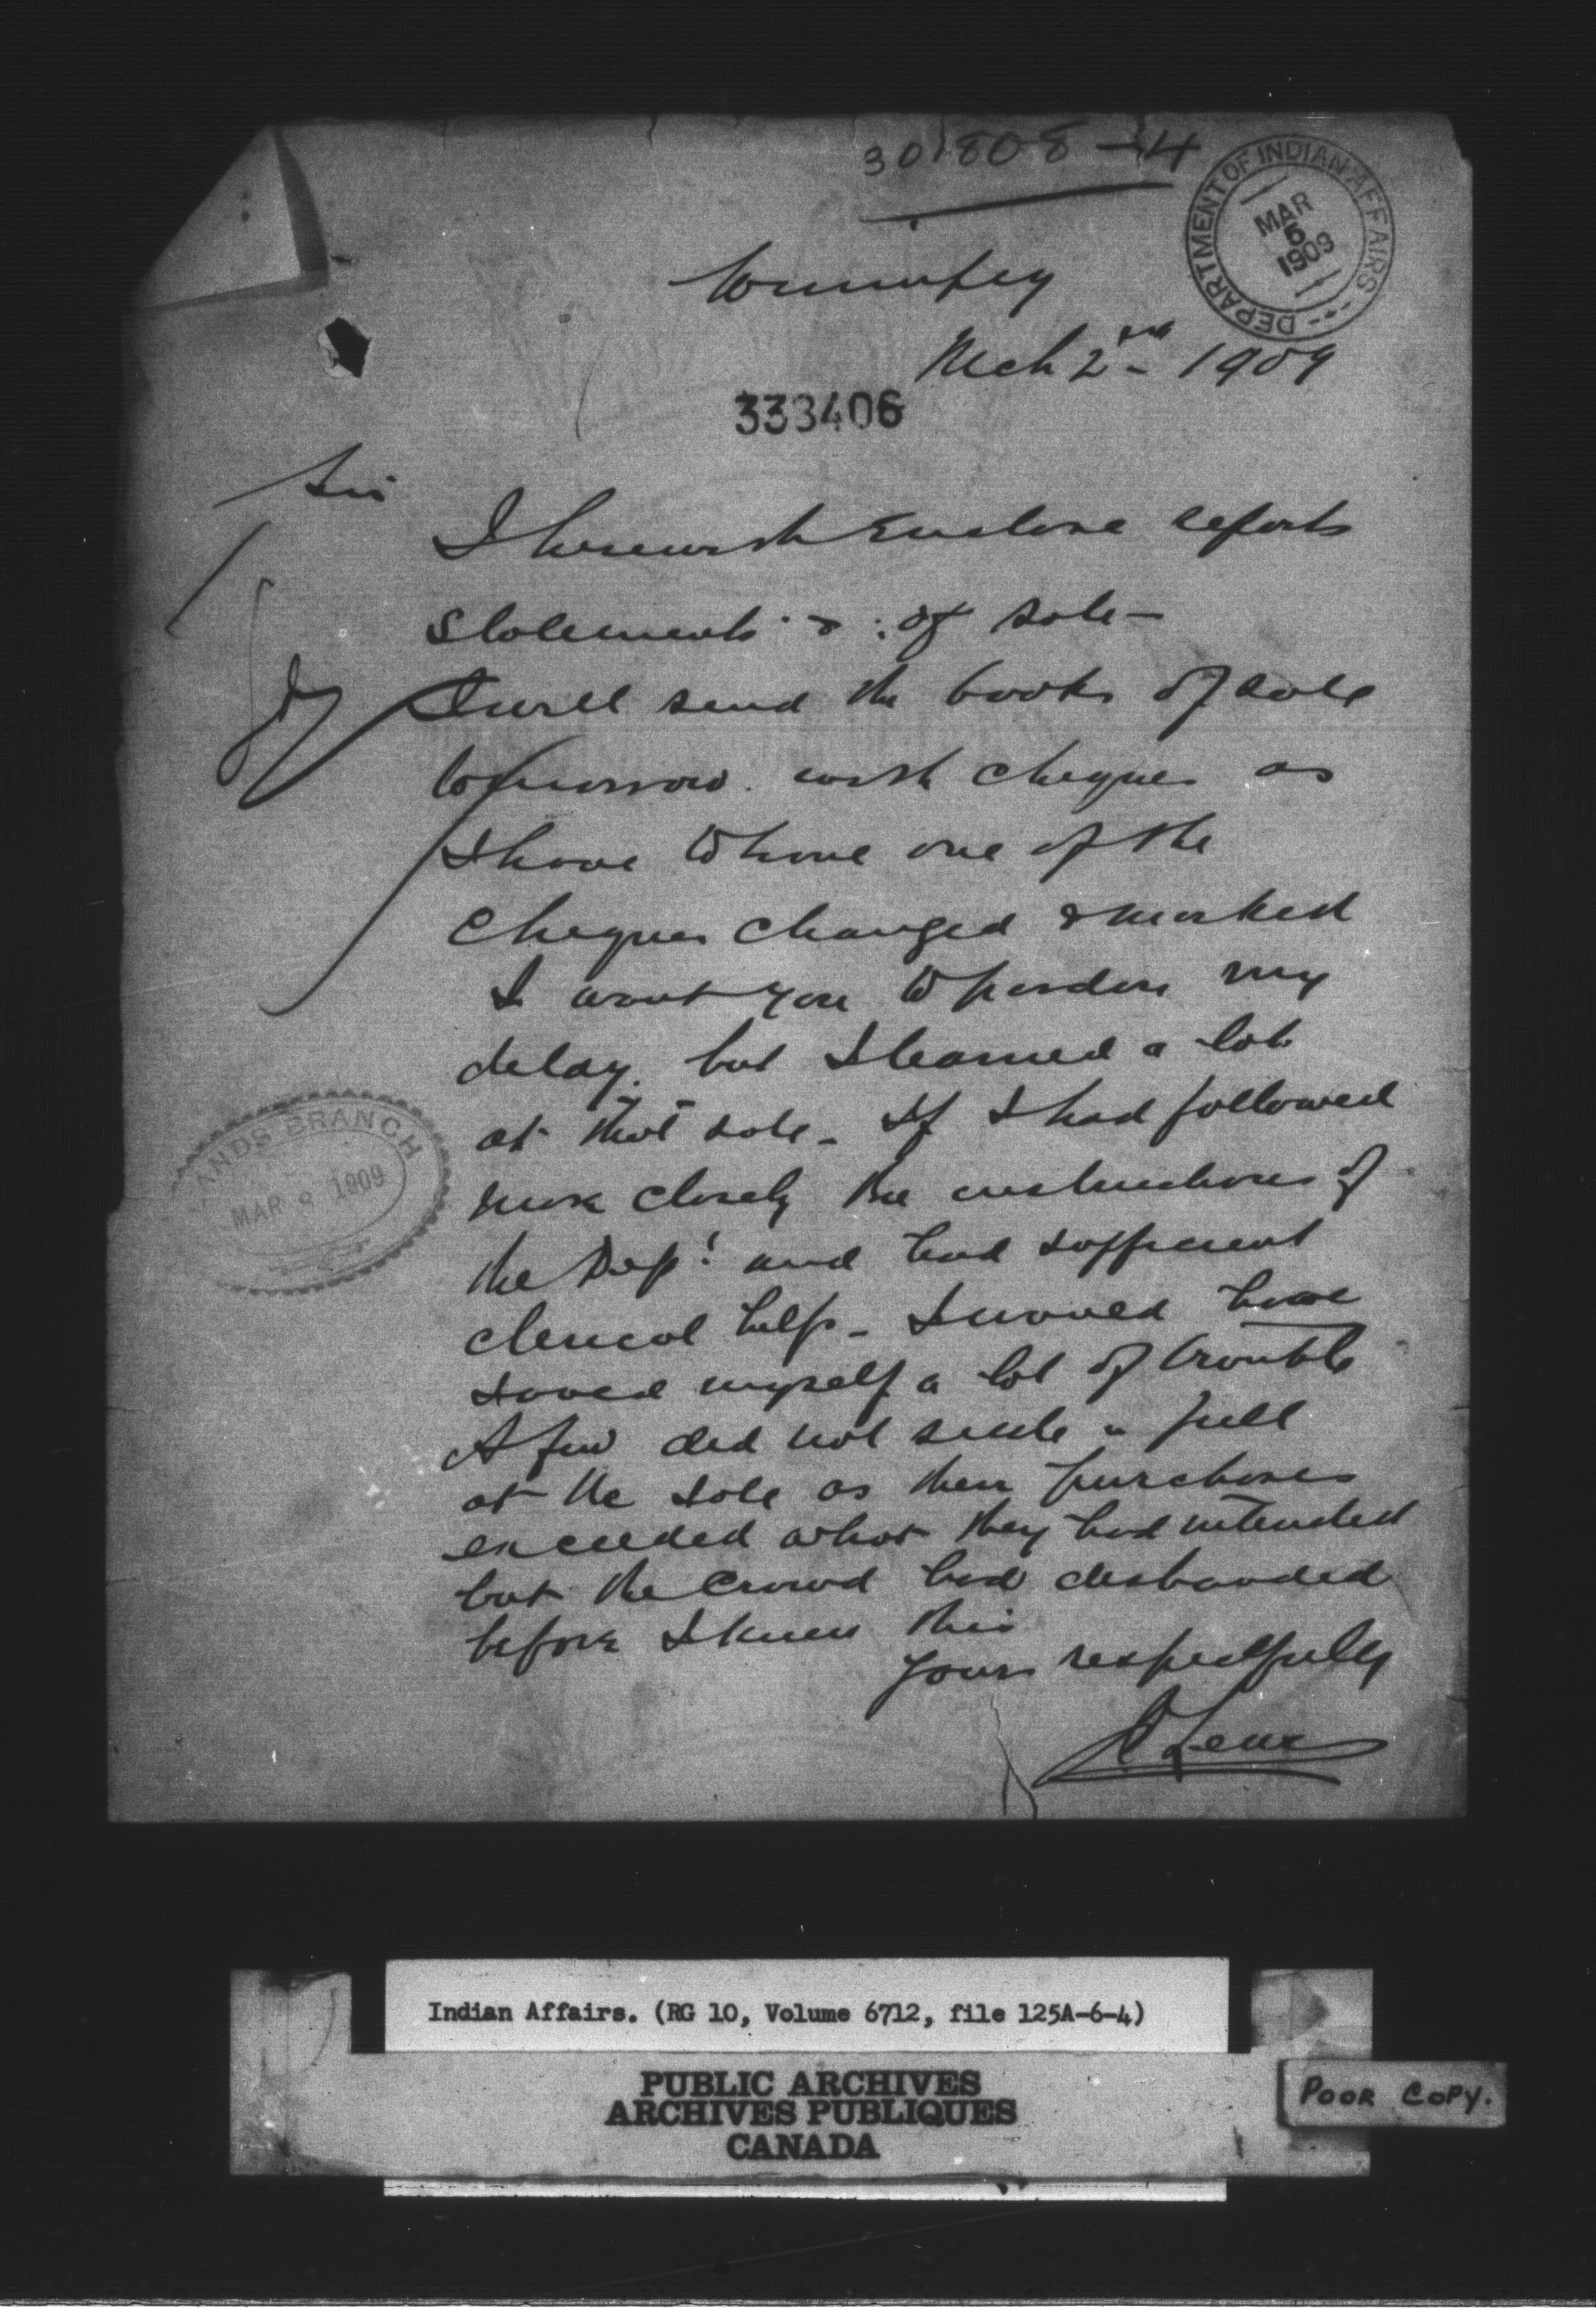 301808-14
DEPARTMENT OF INDIAN AFFAIRS
MAR
5
1909
Winnipeg
Mch 2nd - 1909
333406
Sir
I herewith Enclose reports
statements & of sale -
I will send the books of sale
tomorrow. with cheques as
I have to have one of the
cheques changed & marked
I want you to pardon my
delay. but I learned a lot
at that sale - If I had followed
more closely the instructions of
the Dept. and had sufficient
clerical help - I would have
saved myself a lot of trouble
A few did not settle in full
at the sale as their purchases
exceeded what they had intended
but the crowd had disbanded
before I knew this
Yours respectfully
LANDS BRANCH
MAR 1909
Indian Affairs. (RG 10, Volume 6712, file 125A-6-4)
PUBLIC ARCHIVES
ARCHIVES PUBLIQUES
CANADA
POOR COPY.